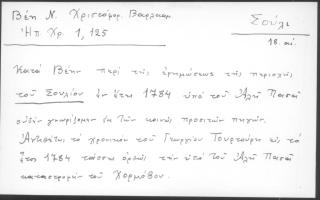 Βέη Ν. Χριστοφόρ. Βαρλααμ
Ηπ Χρ. 1, 125
Σούλι
18 αι.
Κατά Βέην περί της ερημώσεως της περιοχής
του Σουλίου εν έτει 1784 υπό του Αλή Πασά
ουδέν γνωρίζομεν εκ των κοινώς προσιτών πηγών.
Αντιθέτως το χρονικόν του Γεωργίου Τουρτούρη εις το
έτος 1784 τάσσει ορθώς την υπό του Αλή Πασά
καταστροφήν του Χορμόβου.